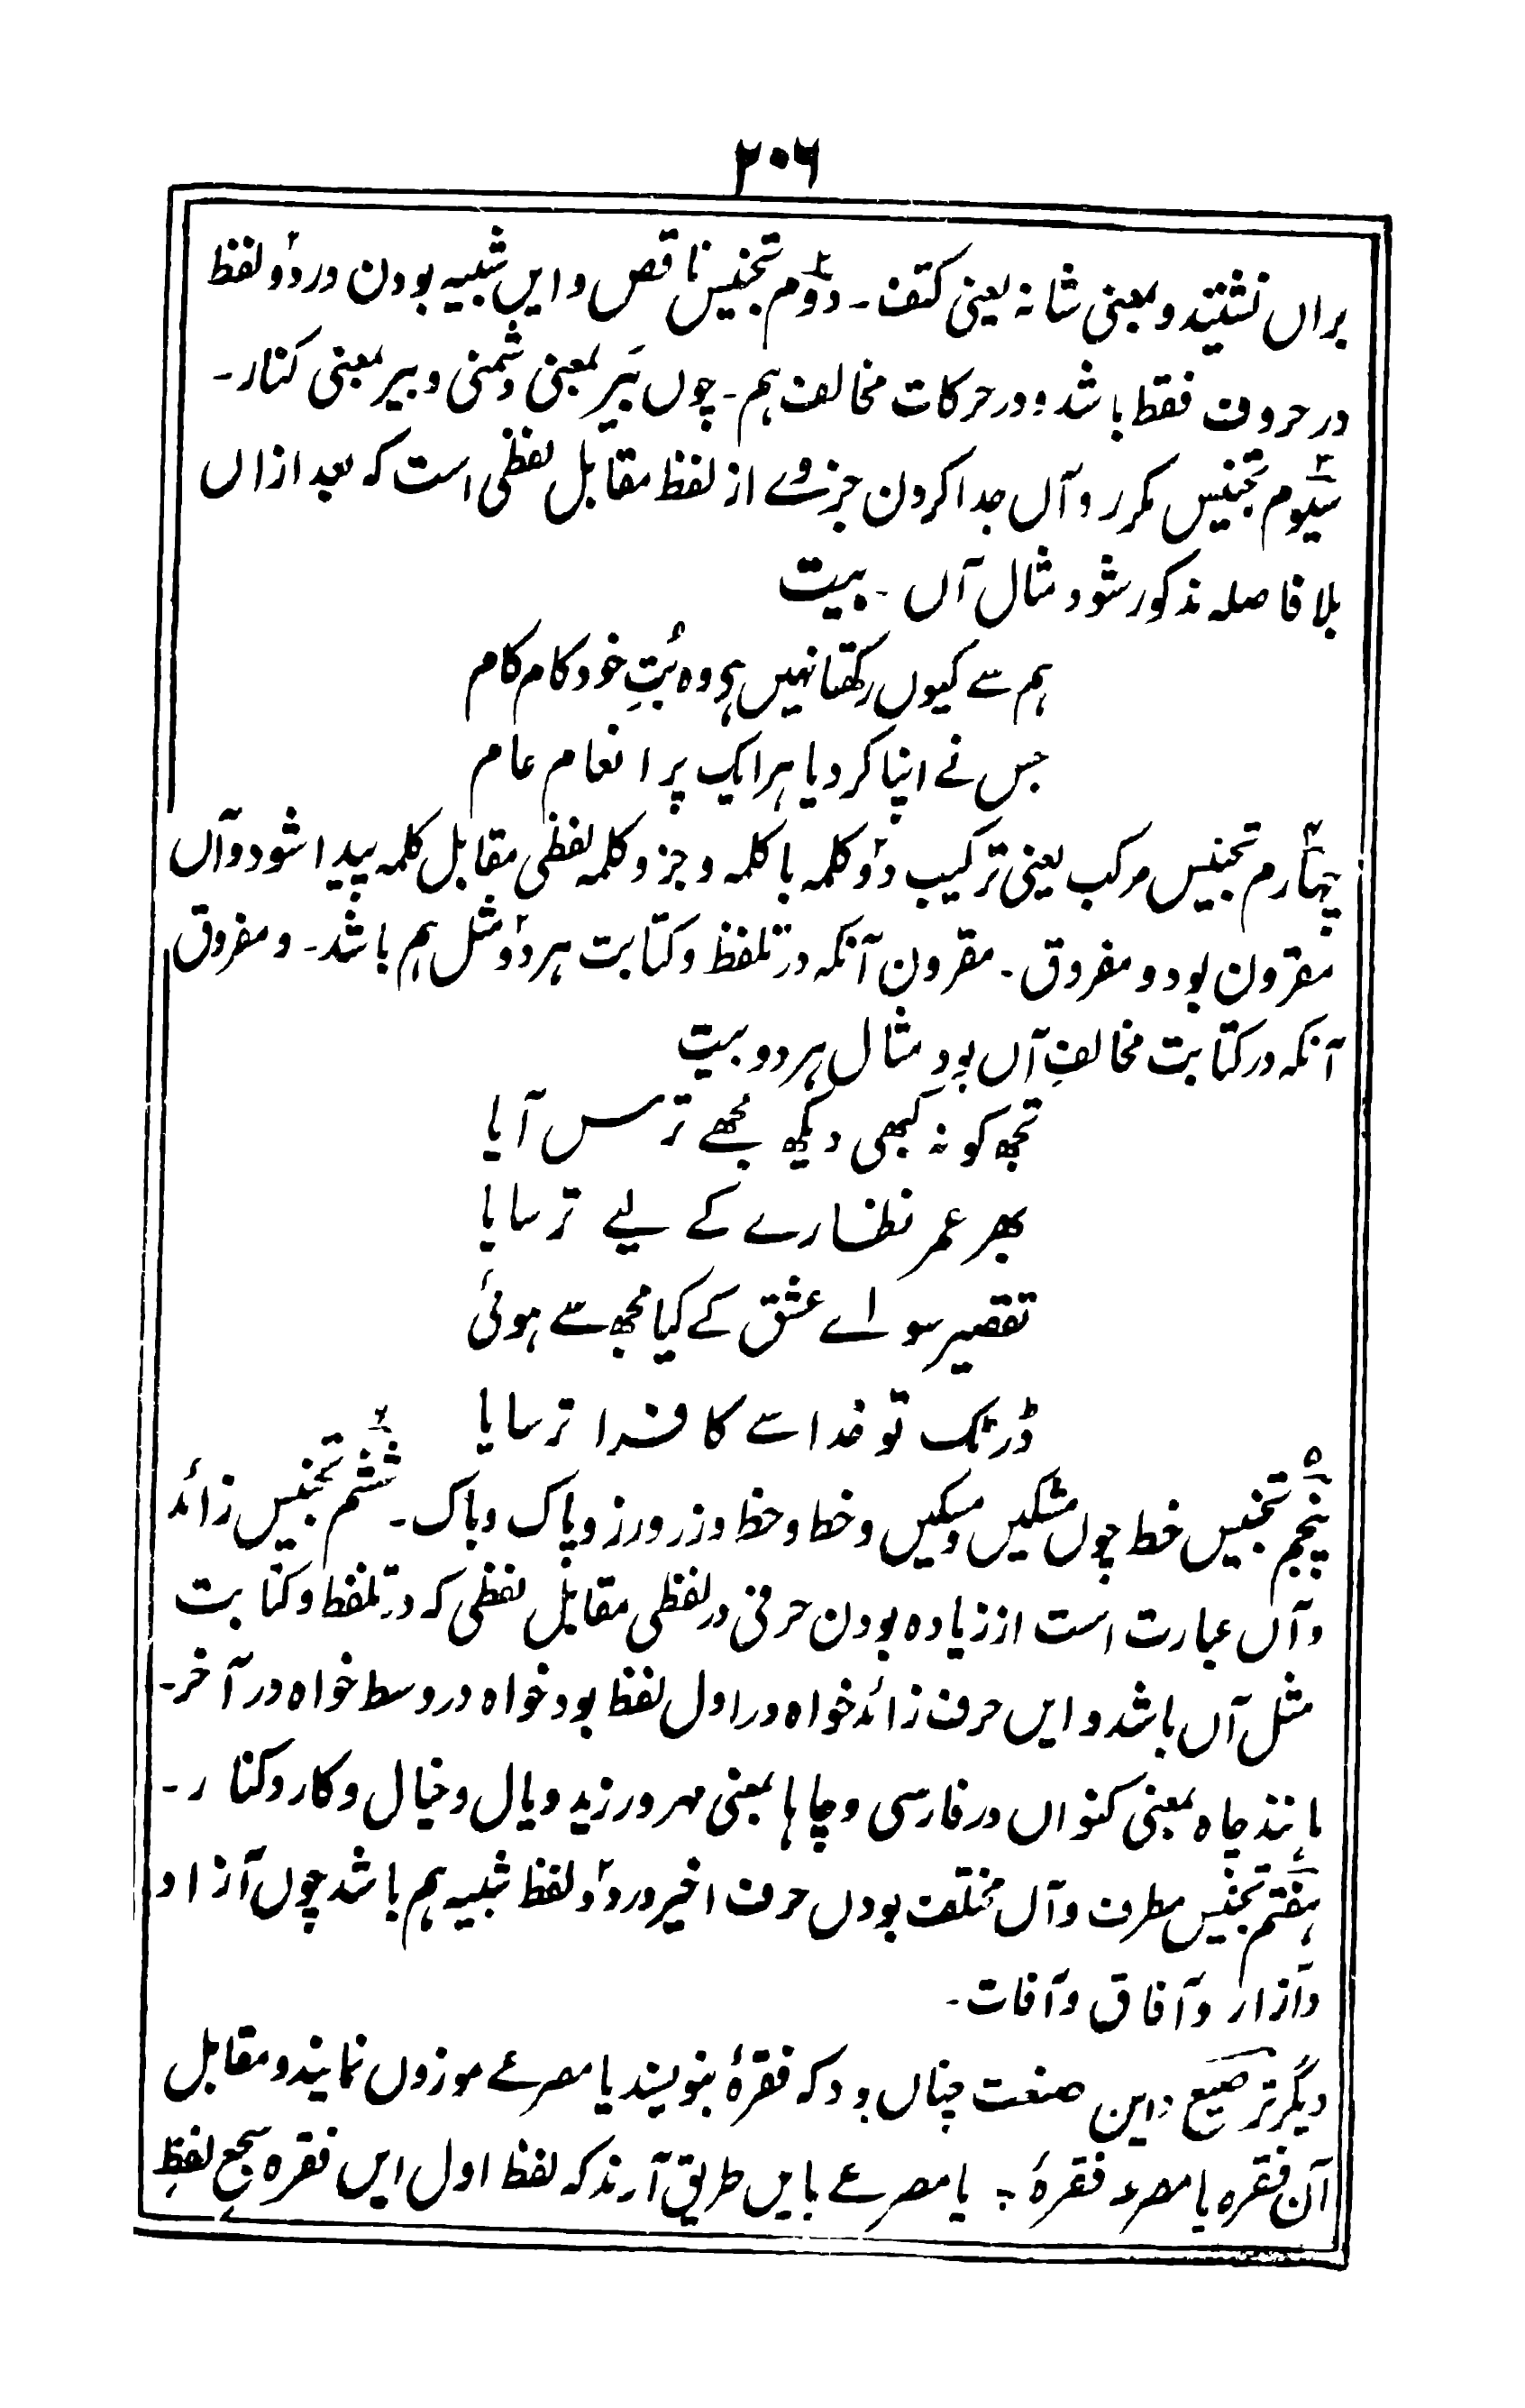 ۲۰۶
براں نشینند و بمعنی شانہ یعنی کتف ۔ دوّم تجنیس ناقص و ایں شبیہ بودن در دو لفظ
در حروف فقط باشد و در حرکات مخالف ہم ۔ چوں بَیر بمعنی دشمنی و بیر بمعنی کنار ۔
سیوم تجنیس مکرر و آں جدا کردن جزوے از لفظ مقابل لفظی است کہ بعد ازاں
بلا فاصلہ مذکور شود مثال آں ۔ بیت
ہم سے کیوں رکھتا نہیں ہی وہ بُتِ خود کام کام
جس نے اپنا کر دیا ہر ایک پر انعام عام
چہارم تجنیس مرکب یعنی ترکیب دو کلمہ با کلمہ و جزو کلمہ لفظی مقابل کلمہ پیدا شود و آں
مقرون بود و مفروق ۔ مقرون آنکہ در تلفظ و کتابت ہر دو مثل ہم باشد ۔ و مفروق
آنکہ در کتابت مخالفِ آں بود مثال ہر دو بیت
تجھ کو نہ کبھی دیکھ مجھے ترس آیا
بھر عمر نظارے کے لیے ترسایا
تقصیر سواے عشق کے کیا مجھ سے ہوئی
ڈر ٹک تو خدا سے کافرا ترسایا
پنجم تجنیس خط چوں مشکیں و مسکیں و خط و حظ و زر و رز و پاک و باک ۔ ششم تجنیس زائد
و آں عبارت است از زیادہ بودن حرفی در لفظی مقابل لفظی کہ در تلفظ و کتابت
مثل آں باشد و ایں حرف زائد خواہ در اول لفظ بود خواہ در وسط خواہ در آخر ۔
مانند چاہ بمعنی کنواں در فارسی و چاہا بمعنی مہر ورزید و یال و خیال و کار و کنار ۔
ہفتم تجنیس مطرف و آں مختلف بودں حرف اخیر در دو لفظ شبیہ ہم باشد چوں آزاد
و آزار و آفاق و آفات ۔
دیگر ترصیع و ایں صنعت چناں بود کہ فقرۂ بنویسند یا مصرعے موزوں نمایند و مقابل
آن فقرہ یا مصرعہ فقرۂ یا مصرعے بایں طریق آرند کہ لفظ اول ایں فقرہ سجع لفظِ